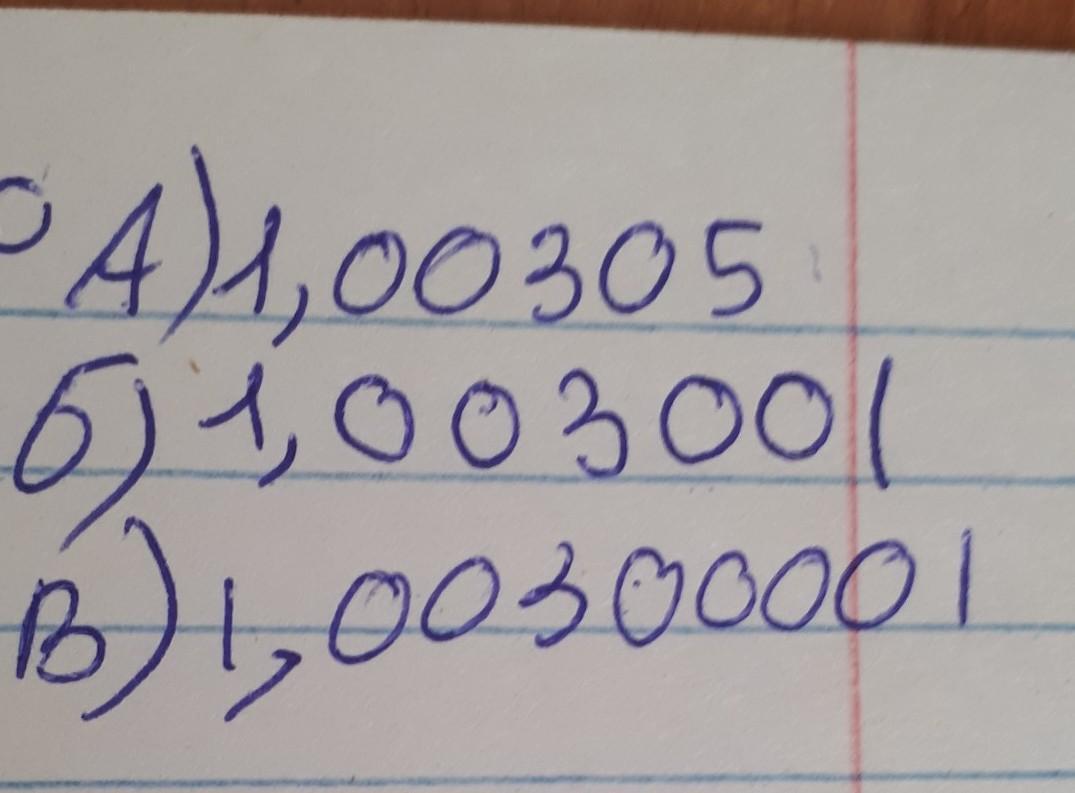 А) 1,00305
б) 1,003001
В) 1,00300001